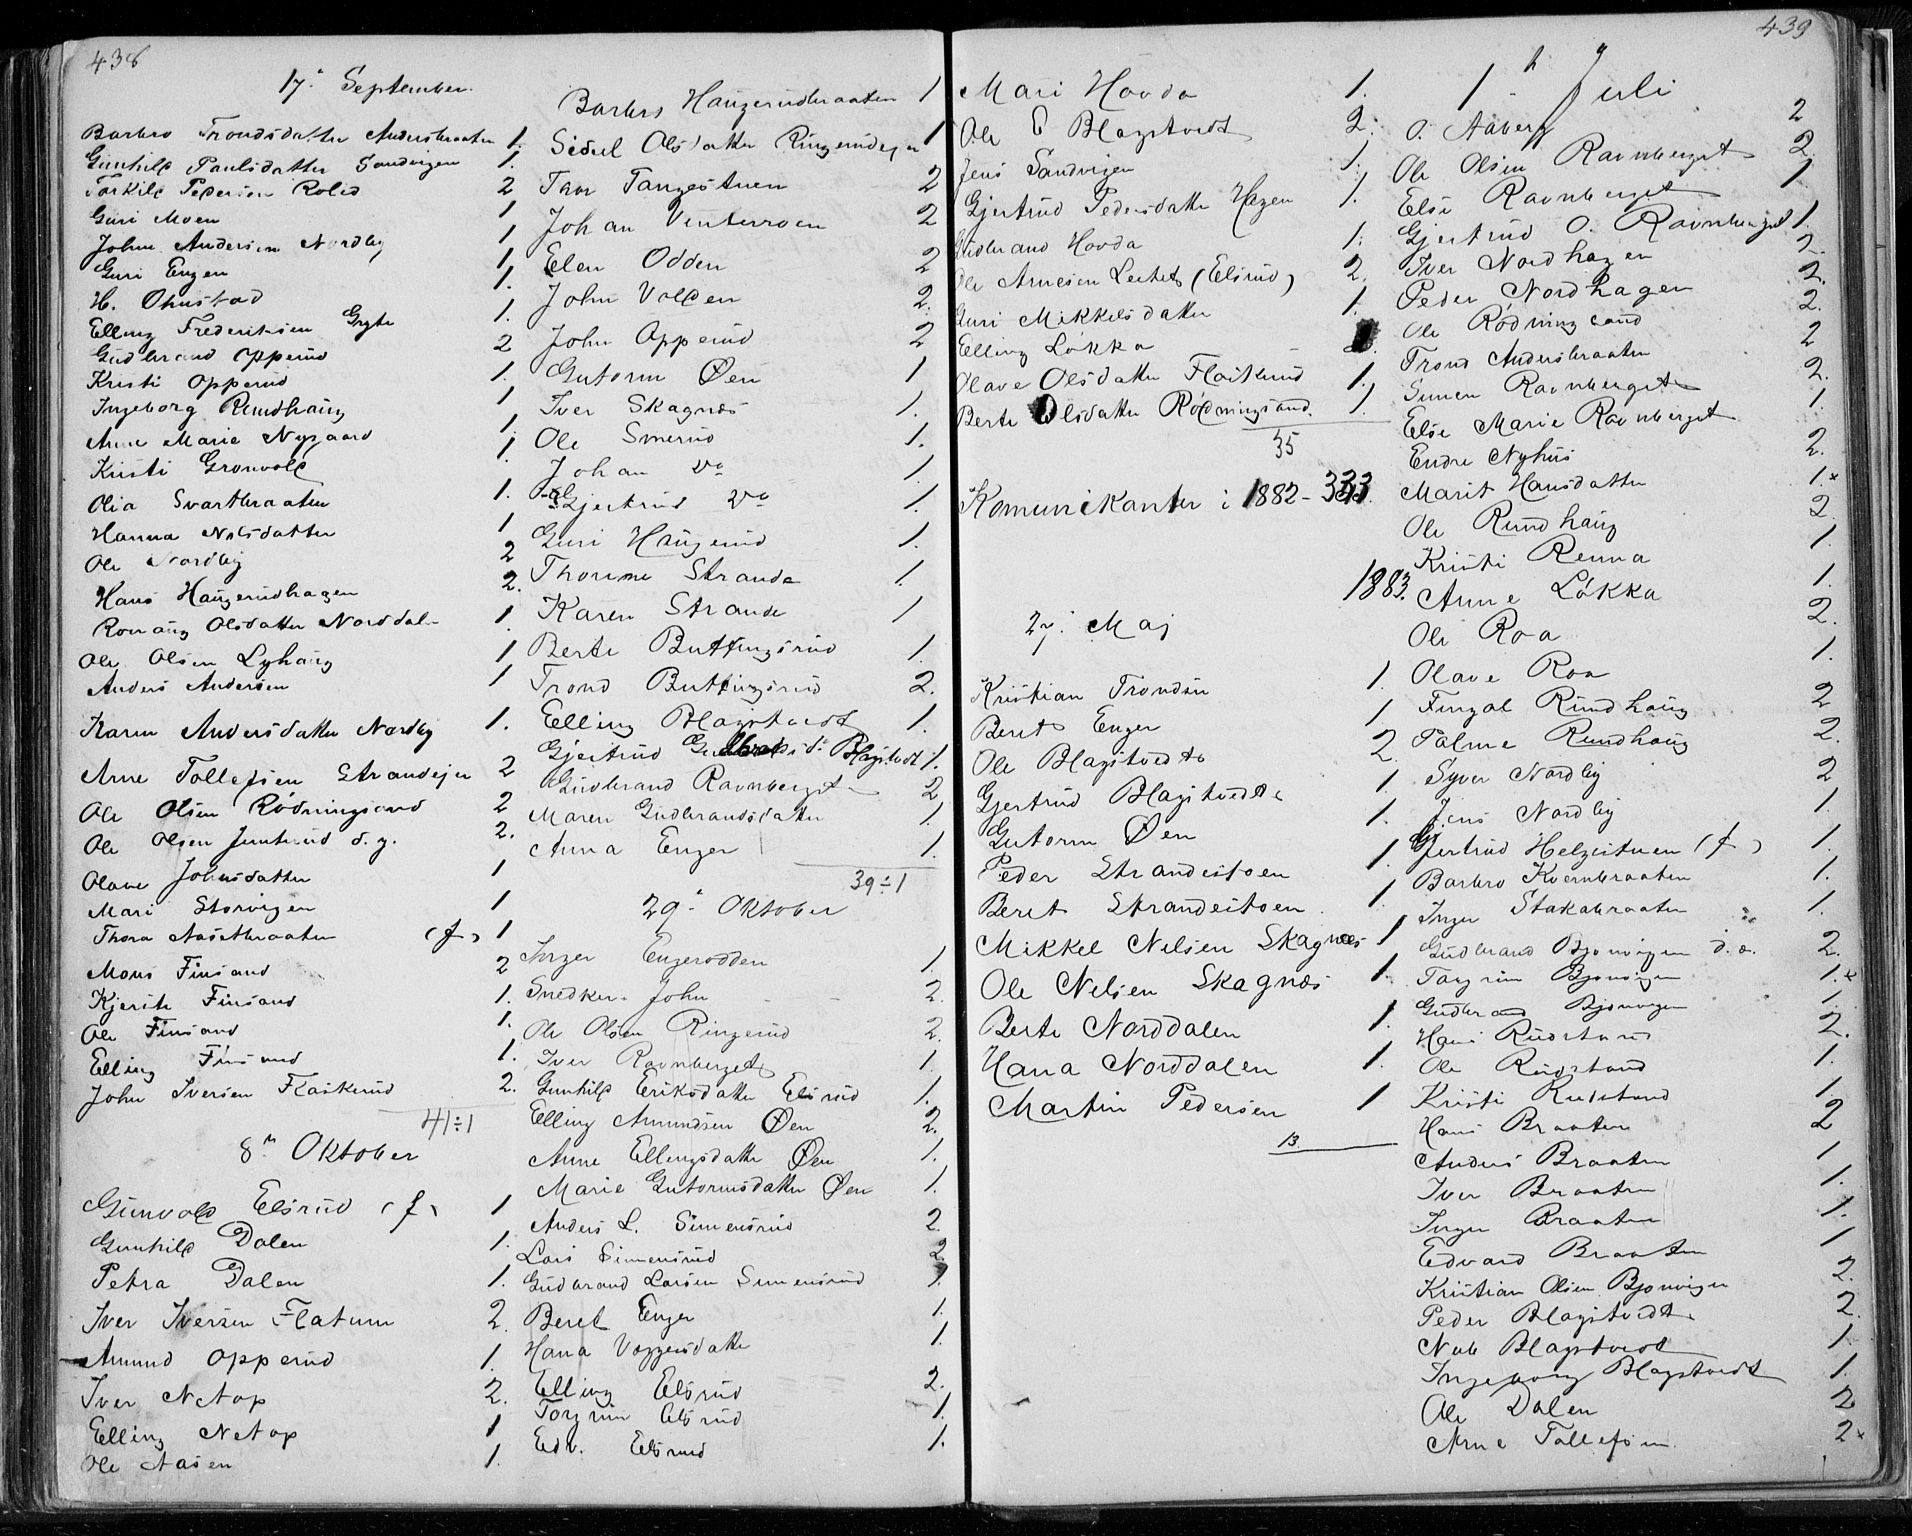 438
17de September.
Barbro Trondsdatter Andersbraaten 1.
Gunhild Paulsdatter Sandvigen 1.
Torkild Pedersen Rolid 2
Guri Moen 1
John Andersen Nordby 1
Guri Enger 1.
H. Ohnstad 1.
Elling Frederiksen Gryte 1.
Gudbrand Opperud 2
Kristi Opperud 1.
Ingeborg Rundhaug 1
Anne Marie Nygaard 1.
Kristi Grønvold 1
Olia Svartbraaten 1.
Hanna Nilsdatter 1
Ole Nordby 2
Hans Haugerudhagen 2.
Ronaug Olsdatter Norddal 1.
Ole Olsen Lyhaug 1
Anders Andersen 1
Karen Andersdatter Nordby 1.
Arne Tollefsen Strandejer 2
Ole Olsen Rødningsand 2
Ole Olsen Juntrud d. y. 2.
Olave Johnsdatter 1
Mari Storvigen 1
Thora Aasetbraaten (f) 1
Mons Finsand 2
Kjersti Finsand 1.
Ole Finsand 1.
Elling Finsand 1.
John Iversen Flaskerud 2.
41÷1
8de Oktober
Gunvold Elsrud (f) 1
Gunhild Dalen 1.
Petra Dalen 1.
Iver Iversen Flatum 2.
Amund Opperud 1.
Iver Netop 2.
Elling Netop 1
Ole Aasen 1.
Barbro Haugerudbraaten 1
Sidsel Olsdatter Ringerudejer 1
Thor Tangestuen 2
Johan Vinterroen 2
Elen Odden 2
John Volden 2.
John Opperud 2
Gutorm Øen 1
Iver Skagnæs 1.
Ole Smerud 1.
Johan do 1.
Gjertrud do 1.
Guri Haugerud 1.
Thorine Strande 1.
Karen Strande 1
Berte Buttingsrud 1.
Trond Buttingsrud 2.
Elling Blagstvedt 1.
Gjertrud Gudbrandsd. Blagstvedt 1.
Gudbrand Ravnberget 2
Maren Gudbrandsdatter 1.
Anna Enger 1.
39÷1
29de Oktober
Inger Engerodden 1.
Snedker-John 2.
Ole Olsen Ringerud 2.
Iver Ravnberget 1.
Gunhild Eriksdatter Elsrud 1.
Elling Amundsen Øen 2.
Anne Ellingsdatter Øen 1.
Marie Gutormsdatter Øen 1.
Anders L. Simensrud 2.
Lars Simensrud 2
Gudbrand Larsen Simensrud 1.
Beret Enger 1.
Hana Vaggersdatter 1.
Elling Elsrud 2.
Torgrim Elsrud 1.
Edv. Elsrud 1.
439
Mari Hovda 1.
Ole E Blagstvedt 2.
Jens Sandvigen 1.
Gjertrud Pedersdatter Hagen 1.
Gudbrand Hovda 1.
Ole Arnesen Leite (Elsrud) 2.
Guri Mikkelsdatter 1.
Elling Løkka
Olave Olsdatter Flaskerud 1.
Berte Olsdatter Rødningsand 1.
35
Komunikanter i 1882 - 333.
1883.
27. Maj
Kristian Trondsen 1.
Beret Enger 1
Ole Blagstvedt 2
Gjertrud Blagstvedt 1
Gutorm Øen 1.
Peder Strandestøen 1
Beret Strandestøen 1
Mikkel Nelsen Skagnæs 1
Ole Nelsen Skagnæs 1.
Berte Norddalen 1.
Hana Norddalen 1.
Martin Pedersen 1
13.
1. Juli
O. Aaberg 2
Ole Olsen Ravnberget 2
Else Ravnberget 1
Gjertrud O. Ravnberget 1.
Iver Nordhagen 2.
Peder Nordhagen 2.
Ole Rødningsand 2.
Trond Andersbraaten 2
Simen Ravnberget 2.
Else Marie Ravnberget 1.
Endre Nyhus 2.
Marit Hansdatter 1.
Ole Rundhaug 2
Kristi Renna 1.
Anne Løkka 1.
Ole Roa 2.
Olave Roa 1.
Fingal Rundhaug 2
Palme Rundhaug 2.
Syver Nordby 2
Jens Nordby 1.
Gjertrud Helgestuen (f) 1.
Barbro Kvernbraaten 1.
Inger Stakabraaten 1.
Gudbrand Bjonvigen d. æ. 2.
Torgrim Bjonvigen 1.
Gudbrand Bjonvigen 1.
Hans Rudstand 2.
Ole Rudstand 1.
Kristi Rudstand 1.
Hans Braaten 2
Anders Braaten 1
Iver Braaten 1.
Inger Braaten 1.
Edvard Braaten 1
Kristian Olsen Bjonvigen 2.
Peder Blagstvedt 2.
Nub Blagstvedt 1.
Ingeborg Blagstvedt 1.
Ole Dalen 2
Arne Tollefsen 2